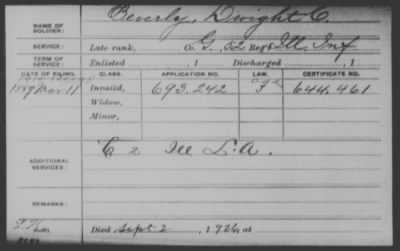 NAME OF SOLDIER: Beverly, Dwight C.
SERVICE: Late rank, Co. G, 52 Reg't Ill. Inf
TERM OF SERVICE: Enlisted , 1 Discharged , 1
DATE OF FILING. CLASS. APPLICATION NO. LAW. CERTIFICATE NO.
1889 Mar 11 Invalid, 693.242 644.461
Widow,
Minor,
ADDITIONAL SERVICES: C 2 Ill L.A.
REMARKS:
Died Sept 2 , 1926, at